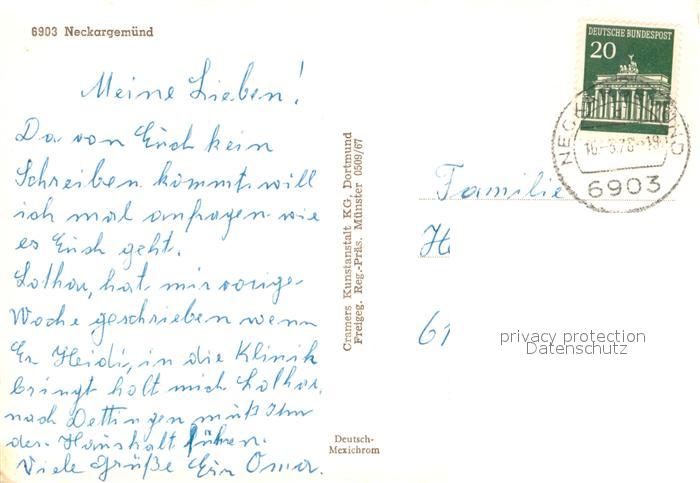 6903 Neckargemünd
Meine Lieben!
Da von Euch kein
Schreiben kommt, will
ich mal anfragen wie
es Euch geht.
Lothar, hat mir vorige
Woche geschrieben wenn
Er Heidi, in die Klinik
bringt holt mich Lothar,
nach Dettingen muß Ihm
den Haushalt führen.
Viele Grüße Eure Oma.
Cramers Kunstanstalt KG, Dortmund
Freigeg. Reg.-Präs. Münster 0509/67
Deutsch-
Mexichrom
DEUTSCHE BUNDESPOST
20
6903
Familie
H
61
privacy protection
Datenschutz